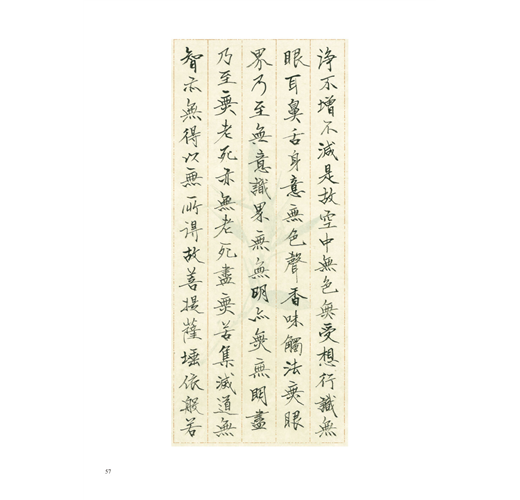 淨不增不減是故空中無色無受想行識無
眼耳鼻舌身意無色聲香味觸法無眼
界乃至無意識界無無明亦無無明盡
乃至無老死亦無老死盡無苦集滅道無
智亦無得以無所得故菩提薩埵依般若
57